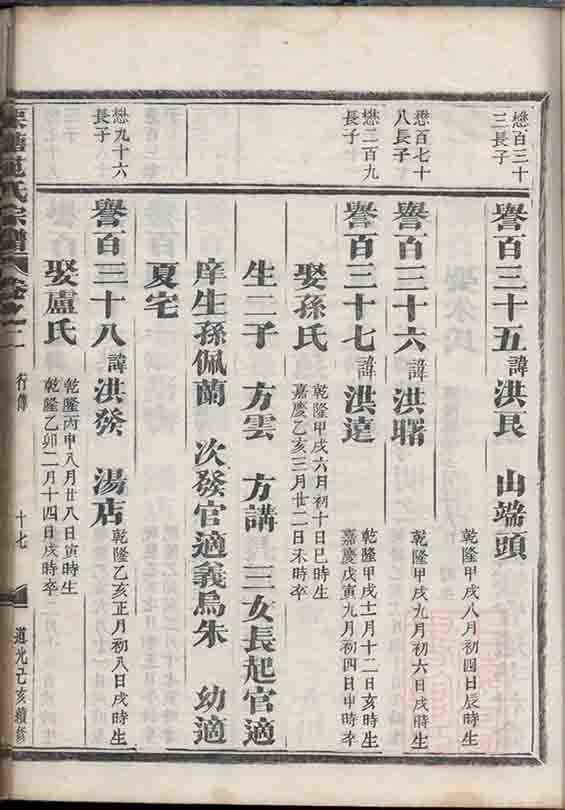 懋百三十
三長子
譽百三十五諱洪良　山端頭
乾隆甲戌八月初四日辰時生
懋百七十
八長子
譽百三十六諱洪曙
乾隆甲戌九月初六日戌時生
懋二百九
長子
譽百三十七諱洪達
乾隆甲戌十一月十二日亥時生
嘉慶戊寅九月初四日申時卒
娶孫氏
乾隆甲戌六月初十日巳時生
嘉慶乙亥三月廿二日未時卒
生二子　方雲　方講　三女長起官適
庠生孫佩蘭　次發官適義烏朱　幼適
夏宅
懋九十六
長子
譽百三十八諱洪發　湯店
乾隆乙亥正月初八日戌時生
娶盧氏
乾隆丙申八月廿八日寅時生
乾隆乙卯二月十四日戌時卒
氏宗譜
卷之
行傳
十七
道光己亥續修